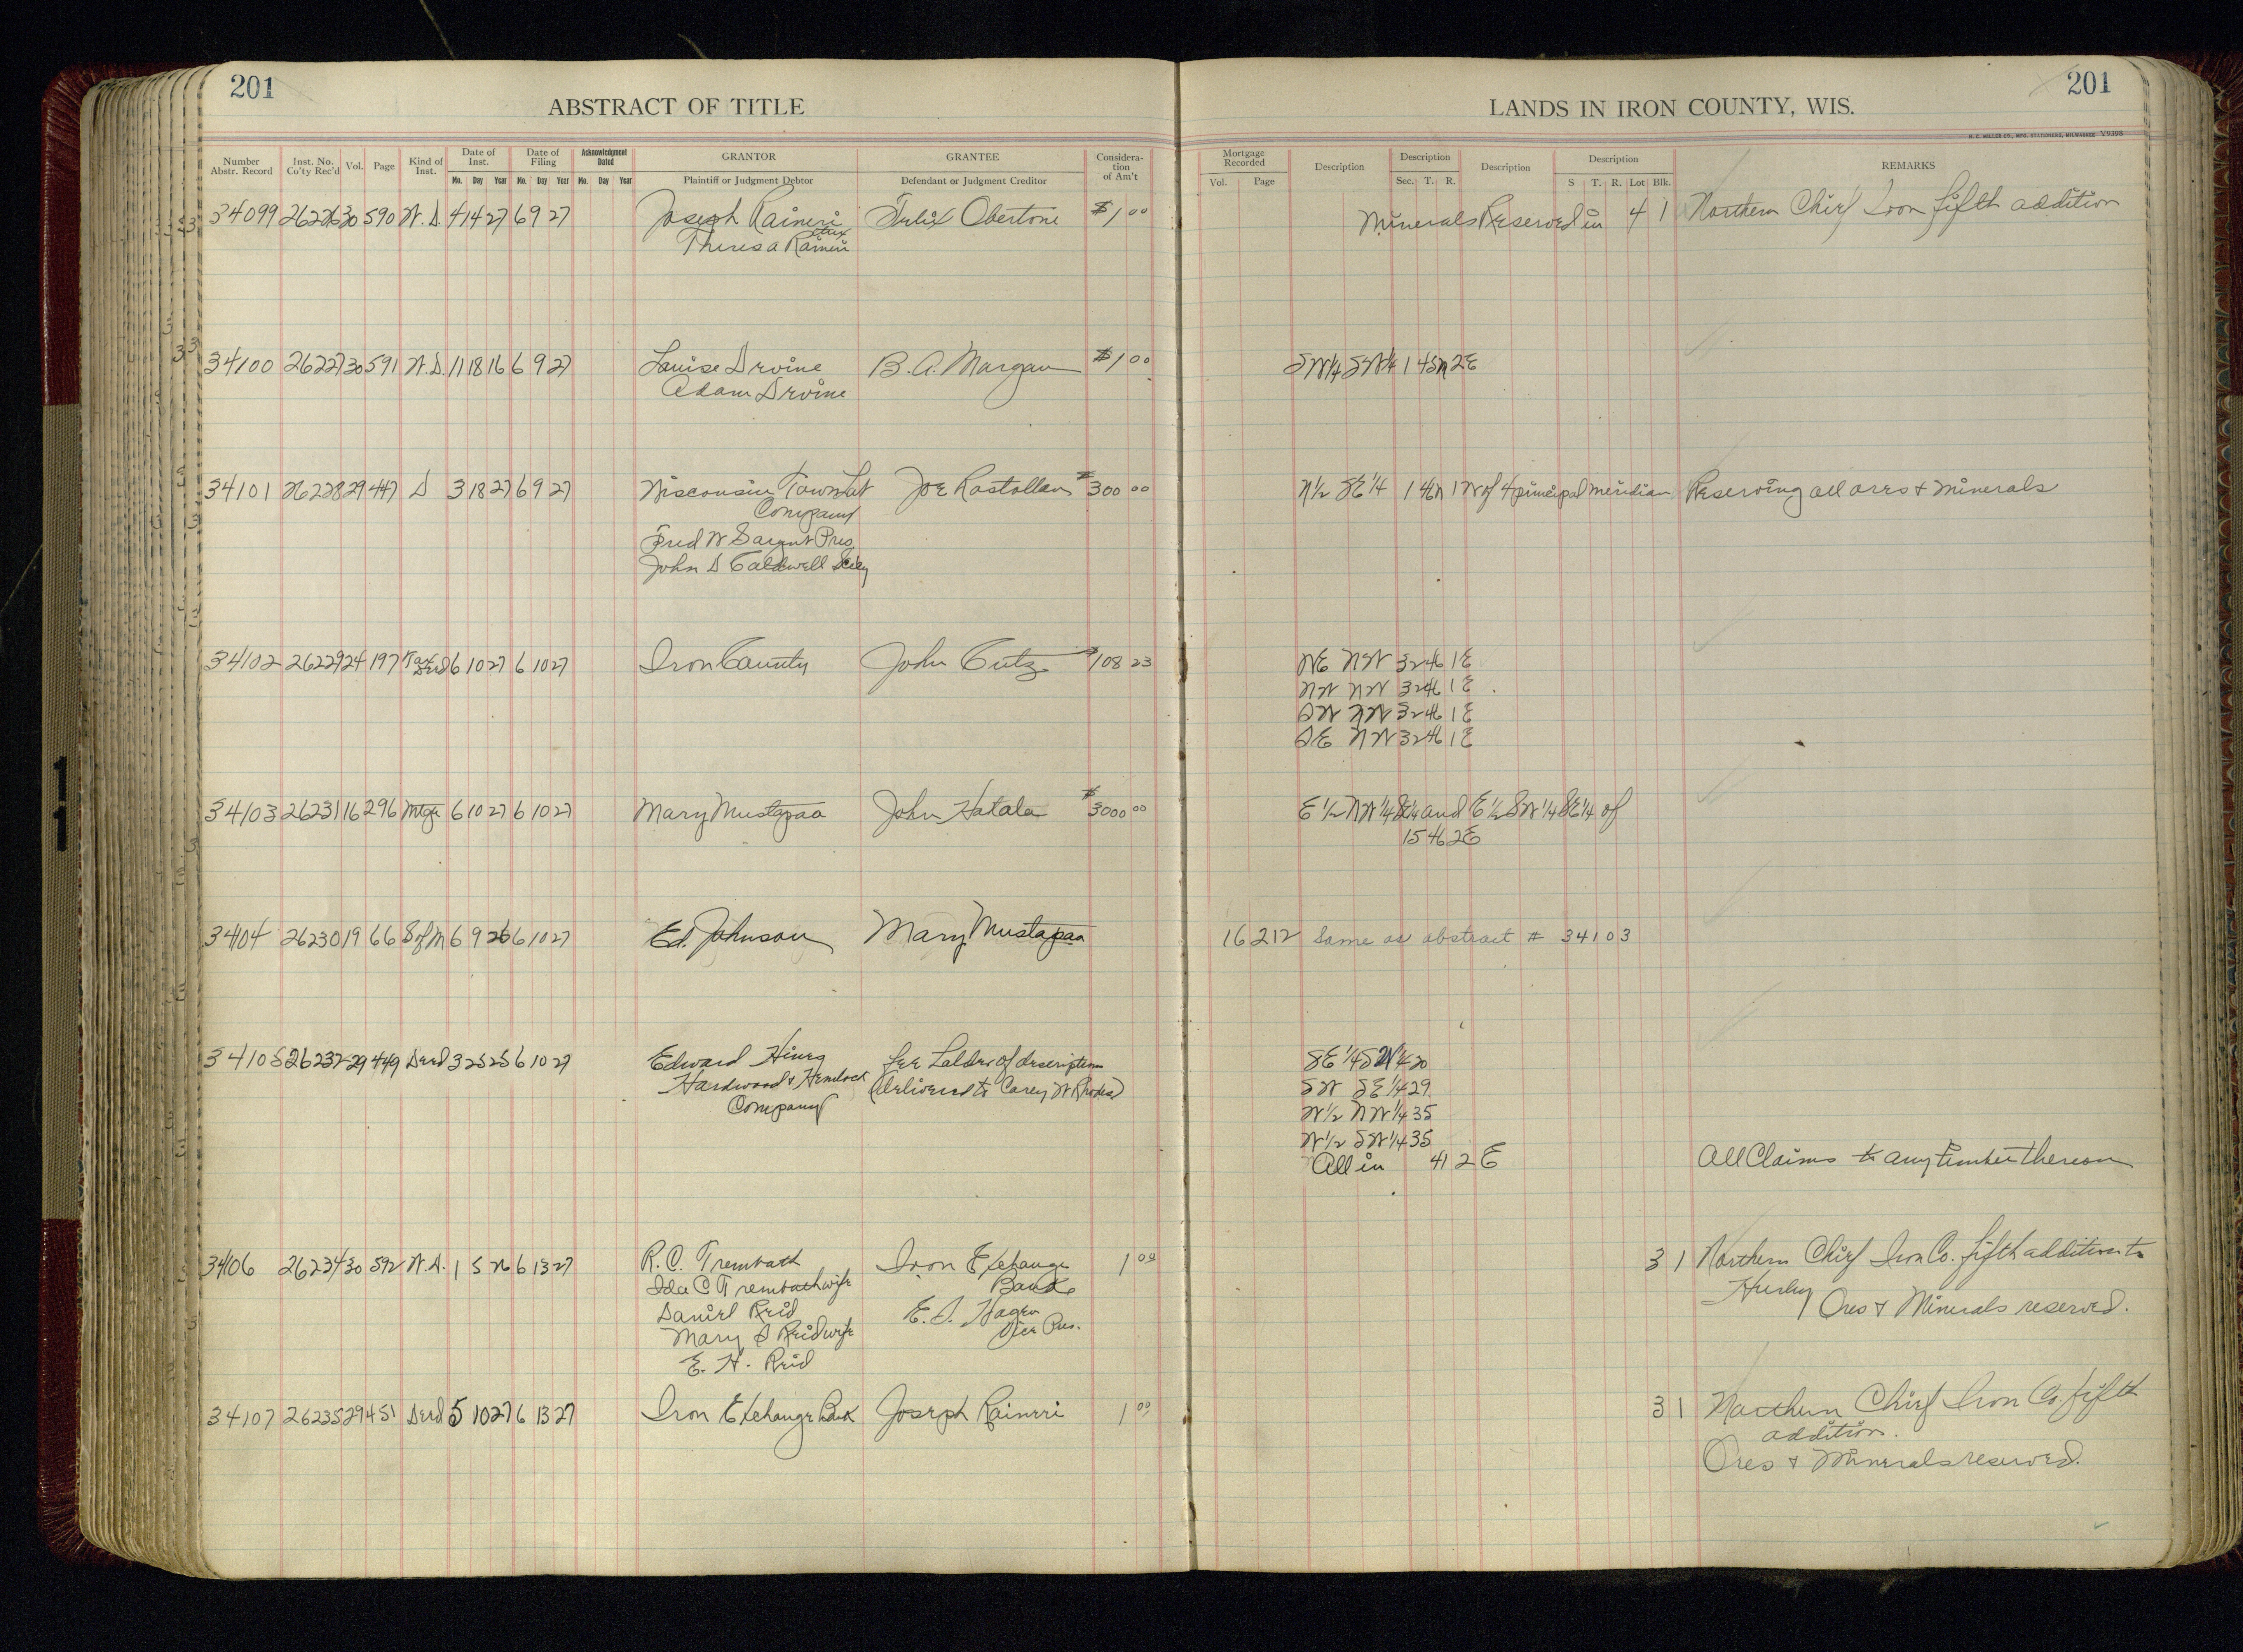 201
201
ABSTRACT OF TITLE
LANDS IN IRON COUNTY, WIS.
H. C. MILLER CO., MFG. STATIONERS, MILWAUKEE V9398
Number Abstr. Record Inst. No. Co'ty Rec'd Vol. Page Kind of Inst. Date of Inst. Mo. Day Year Date of Filing Mo. Day Year Acknowledgment Dated Mo. Day Year GRANTOR Plaintiff or Judgment Debtor GRANTEE Defendant or Judgment Creditor Considera-tion of Am't
Mortgage Recorded Vol. Page Description Description Sec. T. R. Description Description S T. R. Lot Blk. REMARKS
34099 26226 30 590 W. D. 4 14 27 6 9 27 Joseph Raineri Felix Obertone $1 00 Minerals Reserved in 4 1 Northern Chief Iron fifth addition
etux
Theresa Raineri
34100 26227 30 591 W. D. 11 18 16 6 9 27 Louise Irvine B. A. Morgan $1 00 SW1/4 SW1/4 1 45N 2E
Adam Irvine
34101 26228 29 447 D 3 18 27 6 9 27 Wisconsin Town Lot Joe Rastollan $300 00 N1/2 SE1/4 1 46N 1 W of 4 principal meridian Reserving all ores & minerals
Company
Fred W Sargent Pres
John D Caldwell Secy
34102 26229 24 197 Tax Deed 6 10 27 6 10 27 Iron County John Cutz $108 23 NE NW 32 46 1E
NW NW 32 46 1E
SW NW 32 46 1E
SE NW 32 46 1E
34103 26231 16 296 Mtge 6 10 27 6 10 27 Mary Mustapaa John Hatala $3000 00 E1/2 NW1/4 SE1/4 and E1/2 SW1/4 SE1/4 of
15 46 2E
34104 26230 19 66 S of M 6 9 26 6 10 27 Ed. Johnson Mary Mustapaa 16 212 Same as abstract # 34103
34105 26232 29 449 Deed 3 25 25 6 10 27 Edward Hines See of description SE1/4 SW1/4 20
Hardwood & Hemlock (Delivered to Carey W Rhodes) SW SE1/4 29
Company W1/2 NW1/4 35
W1/2 SW1/4 35
All in 41 2 E All Claims to any timber thereon
34106 26234 30 592 W. D. 1 5 26 6 13 27 R. C. Trembath Iron Exchange 1 00 3 1 Northern Chief Iron Co. fifth addition to
Ida C Trembath wife Bank Hurley
Daniel Reid E. D. Hagen Ores & Minerals reserved.
Mary D Reid wife Vice Pres.
E. H. Reid
34107 26235 29 451 Deed 5 10 27 6 13 27 Iron Exchange Bank Joseph Raineri 1 00 3 1 Northern Chief Iron Co. fifth
addition.
Ores & Minerals reserved.
11